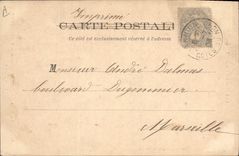 Imprimé
CARTE POSTALE
Ce côté est exclusivement réservé à l'adresse
Monsieur André Dalmas
boulevard Dugommier
Marseille